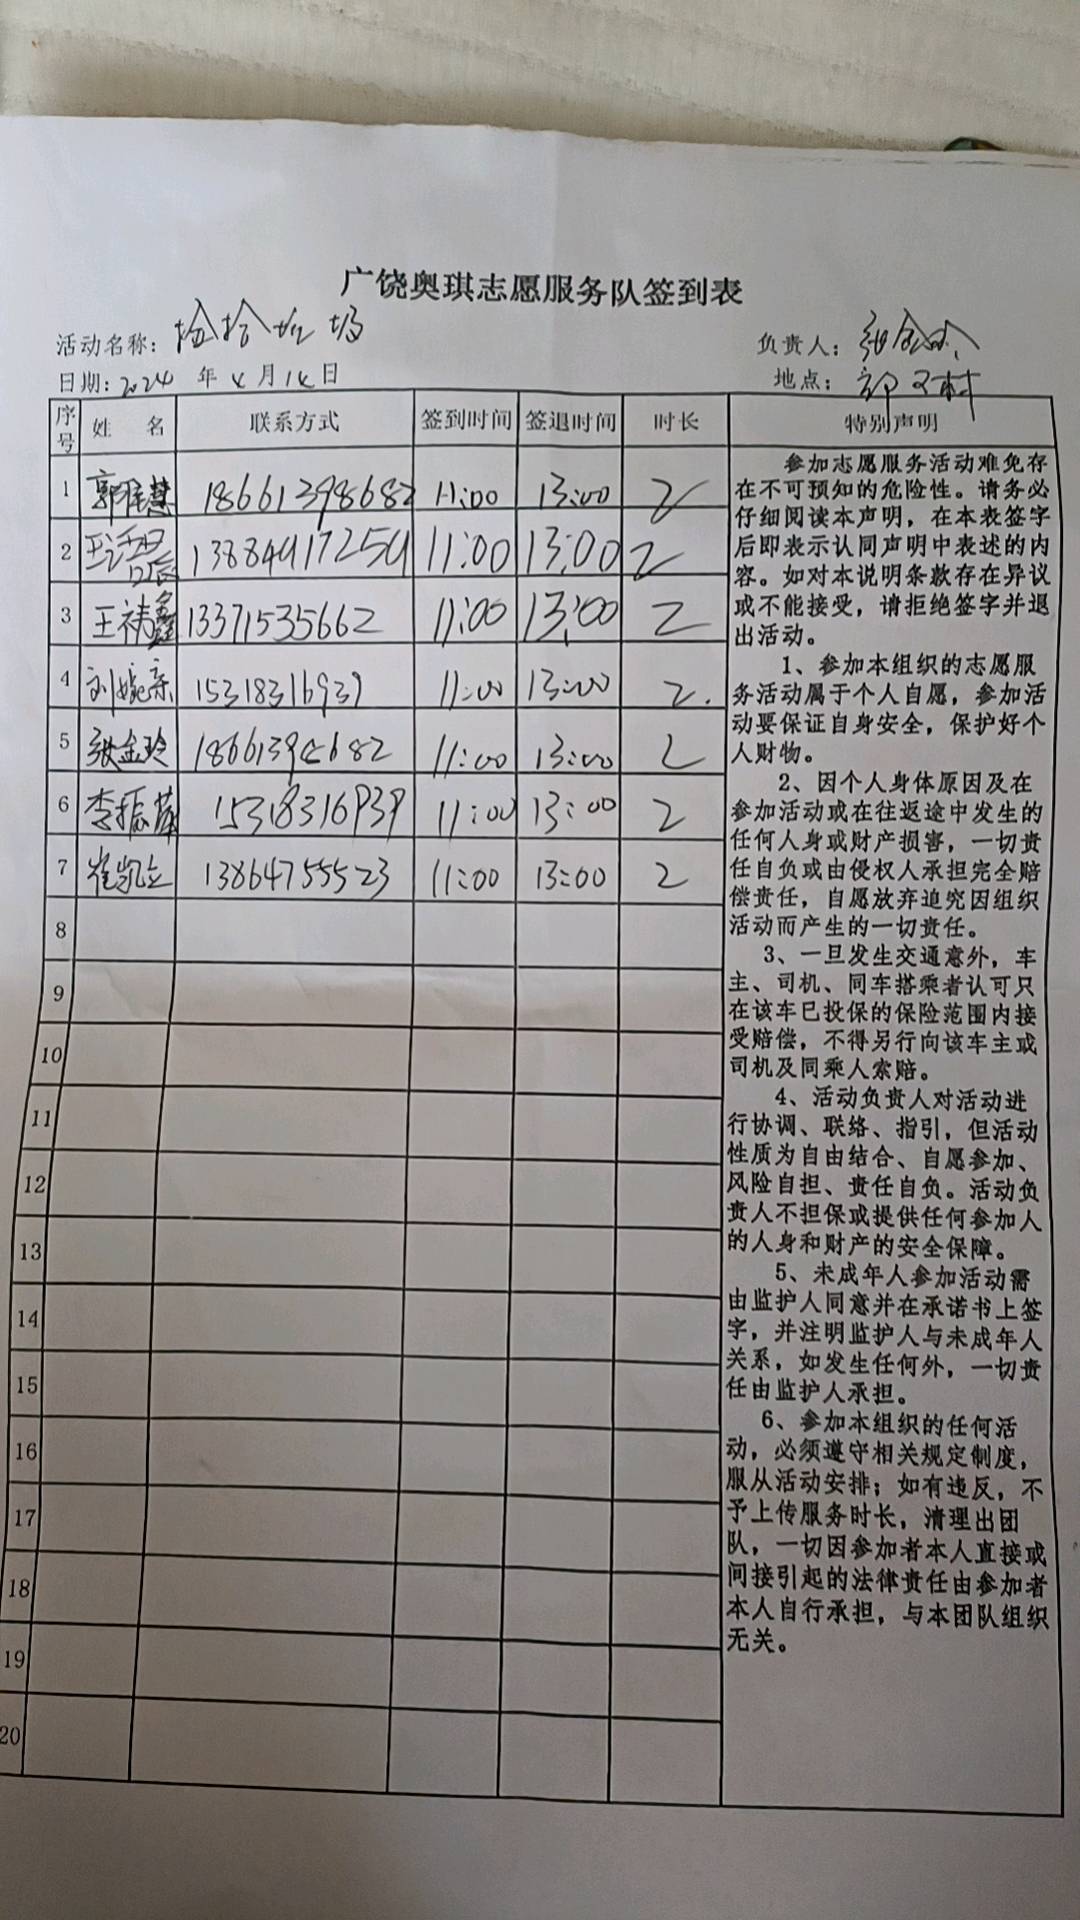 广饶奥琪志愿服务队签到表
活动名称：捡拾垃圾
负责人：
日期：2024 年 4 月 14 日
地点：
序号 姓 名 联系方式 签到时间 签退时间 时长 特别声明
1 郭佳慧 18661398682 11:00 13:00 2
2 王 13884917254 11:00 13:00 2
3 王祷鑫 13371535662 11:00 13:00 2
4 刘婉亲 15318316939 11:00 13:00 2.
5 张金玲 18661398682 11:00 13:00 2
6 李振萍 15318316939 11:00 13:00 2
7 崔凯立 13864755523 11:00 13:00 2
8
9
10
11
12
13
14
15
16
17
18
19
20
参加志愿服务活动难免存
在不可预知的危险性。请务必
仔细阅读本声明，在本表签字
后即表示认同声明中表述的内
容。如对本说明条款存在异议
或不能接受，请拒绝签字并退
出活动。
1、参加本组织的志愿服
务活动属于个人自愿，参加活
动要保证自身安全，保护好个
人财物。
2、因个人身体原因及在
参加活动或在往返途中发生的
任何人身或财产损害，一切责
任自负或由侵权人承担完全赔
偿责任，自愿放弃追究因组织
活动而产生的一切责任。
3、一旦发生交通意外，车
主、司机、同车搭乘者认可只
在该车已投保的保险范围内接
受赔偿，不得另行向该车主或
司机及同乘人索赔。
4、活动负责人对活动进
行协调、联络、指引，但活动
性质为自由结合、自愿参加、
风险自担、责任自负。活动负
责人不担保或提供任何参加人
的人身和财产的安全保障。
5、未成年人参加活动需
由监护人同意并在承诺书上签
字，并注明监护人与未成年人
关系，如发生任何外，一切责
任由监护人承担。
6、参加本组织的任何活
动，必须遵守相关规定制度，
服从活动安排；如有违反，不
予上传服务时长，清理出团
队，一切因参加者本人直接或
间接引起的法律责任由参加者
本人自行承担，与本团队组织
无关。